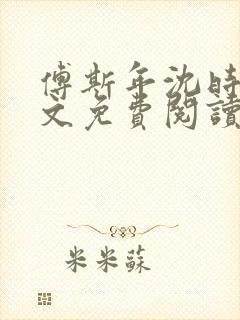 傅斯年沈時
文免費閱讀
米米蘇